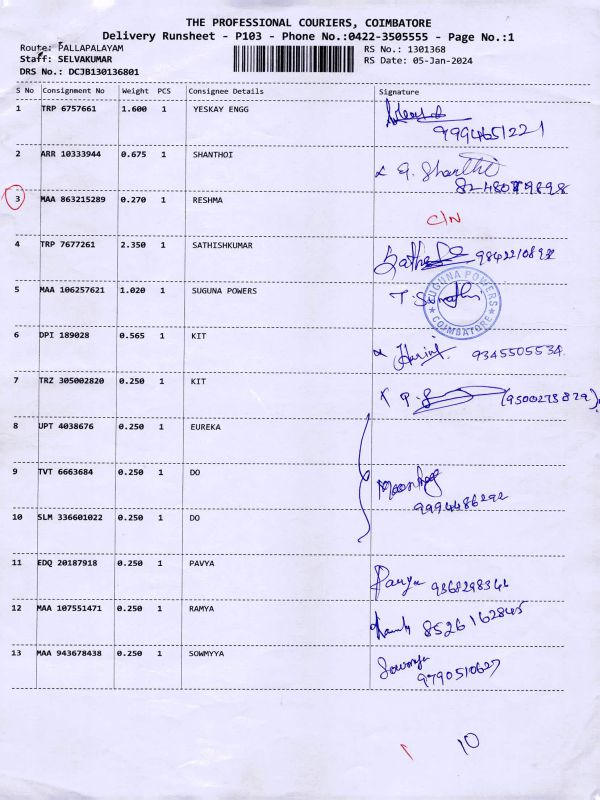 THE PROFESSIONAL COURIERS, COIMBATORE
Delivery Runsheet - P103 - Phone No.:0422-3505555 - Page No.:1
Route: PALLAPALAYAM RS No.: 1301368
Staff: SELVAKUMAR RS Date: 05-Jan-2024
DRS No.: DCJB130136801
S No Consignment No Weight PCS Consignee Details Signature
1 TRP 6757661 1.600 1 YESKAY ENGG
9994651221
2 ARR 10333944 0.675 1 SHANTHOI
G. Shanthi
3 MAA 863215289 0.270 1 RESHMA
C/N
4 TRP 7677261 2.350 1 SATHISHKUMAR
5 MAA 106257621 1.020 1 SUGUNA POWERS
SUGUNA POWERS
COIMBATORE
6 DPI 189028 0.565 1 KIT
9345505534
7 TRZ 305002820 0.250 1 KIT
(9500273829)
8 UPT 4038676 0.250 1 EUREKA
9 TVT 6663684 0.250 1 DO
9994486292
10 SLM 336601022 0.250 1 DO
11 EDQ 20187918 0.250 1 PAVYA
Pavya
12 MAA 107551471 0.250 1 RAMYA
8526162845
13 MAA 943678438 0.250 1 SOWMYYA
Sowmya
9790510627
10